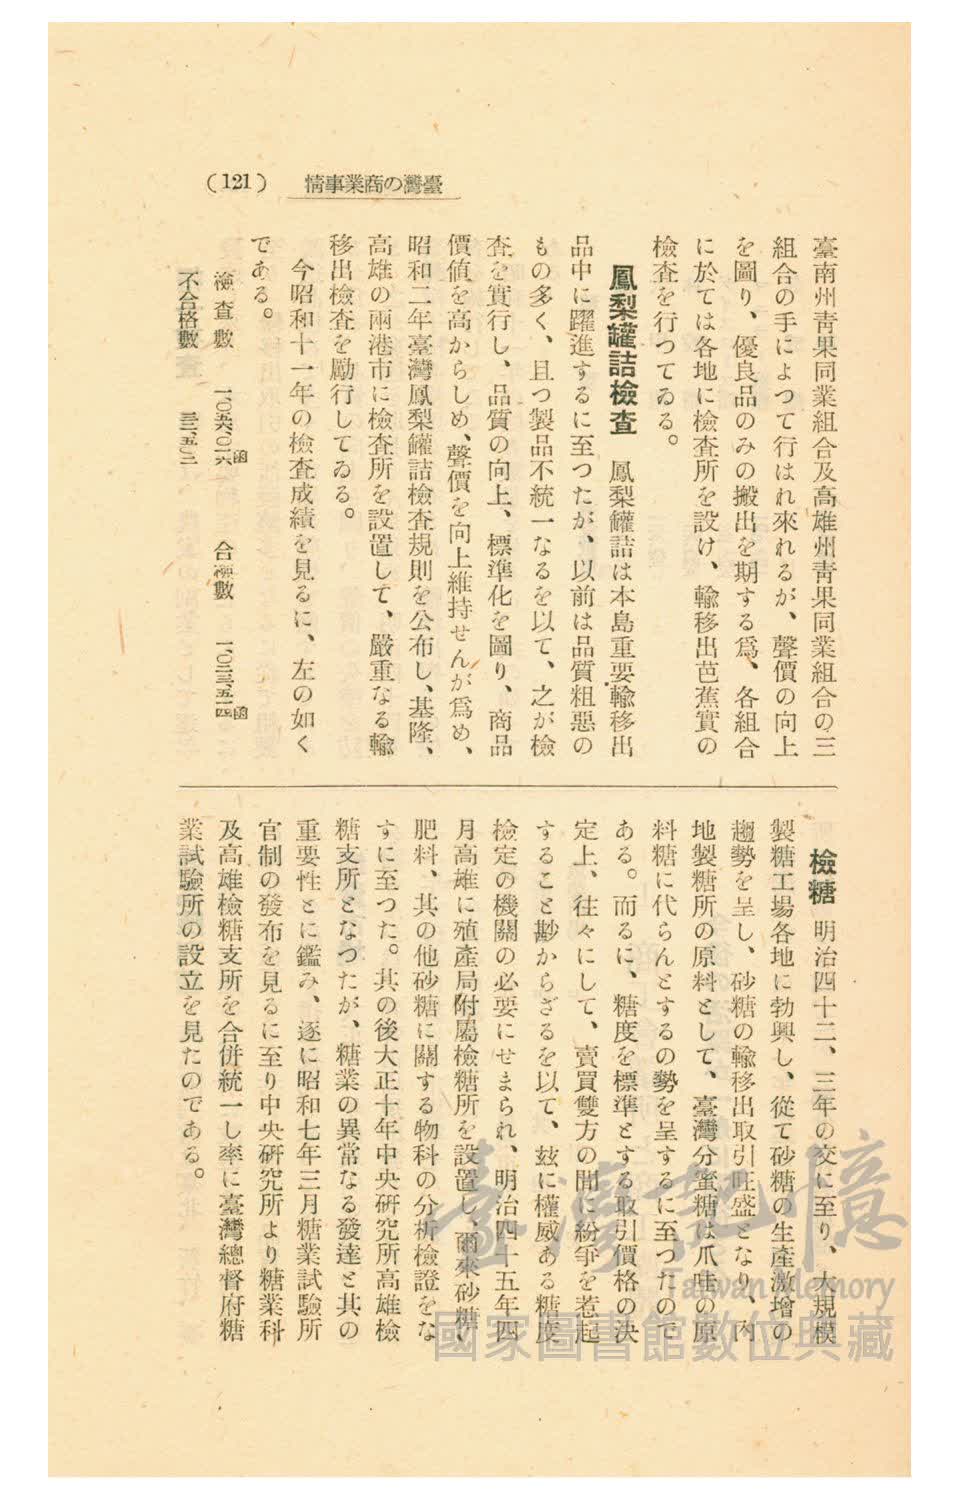 (121) 情事業商の灣臺
臺南州靑果同業組合及高雄州靑果同業組合の三
組合の手によつて行はれ來れるが、聲價の向上
を圖り、優良品のみの搬出を期する爲、各組合
に於ては各地に檢查所を設け、輸移出芭蕉實の
檢查を行つてゐる。
鳳梨罐詰檢查 鳳梨罐詰は本島重要輸移出
品中に躍進するに至つたが、以前は品質粗惡の
もの多く、且つ製品不統一なるを以て、之が檢
查を實行し、品質の向上、標準化を圖り、商品
價値を高からしめ、聲價を向上維持せんが爲め、
昭和二年臺灣鳳梨罐詰檢查規則を公布し、基隆、
高雄の兩港市に檢查所を設置して、嚴重なる輸
移出檢查を勵行してゐる。
今昭和十一年の檢查成績を見るに、左の如く
である。
檢查數 一、〇五六、〇一六函 合格數 一、〇二三、五一四函
不合格數 三二、五〇二
檢糖 明治四十二、三年の交に至り、大規模
製糖工場各地に勃興し、從て砂糖の生產激增の
趨勢を呈し、砂糖の輸移出取引旺盛となり、內
地製糖所の原料として、臺灣分蜜糖は爪哇の原
料糖に代らんとするの勢を呈するに至つたので
ある。而るに、糖度を標準とする取引價格の決
定上、往々にして、賣買雙方の間に紛爭を惹起
すること尠からざるを以て、玆に權威ある糖度
檢定の機關の必要にせまられ、明治四十五年四
月高雄に殖產局附屬檢糖所を設置し、爾來砂糖、
肥料、其の他砂糖に關する物科の分析檢證をな
すに至つた。其の後大正十年中央硏究所高雄檢
糖支所となつたが、糖業の異常なる發達と其の
重要性とに鑑み、逐に昭和七年三月糖業試驗所
官制の發布を見るに至り中央硏究所より糖業科
及高雄檢糖支所を合併統一し率に臺灣總督府糖
業試驗所の設立を見たのである。
臺灣記憶
Taiwan Memory
國家圖書館數位典藏